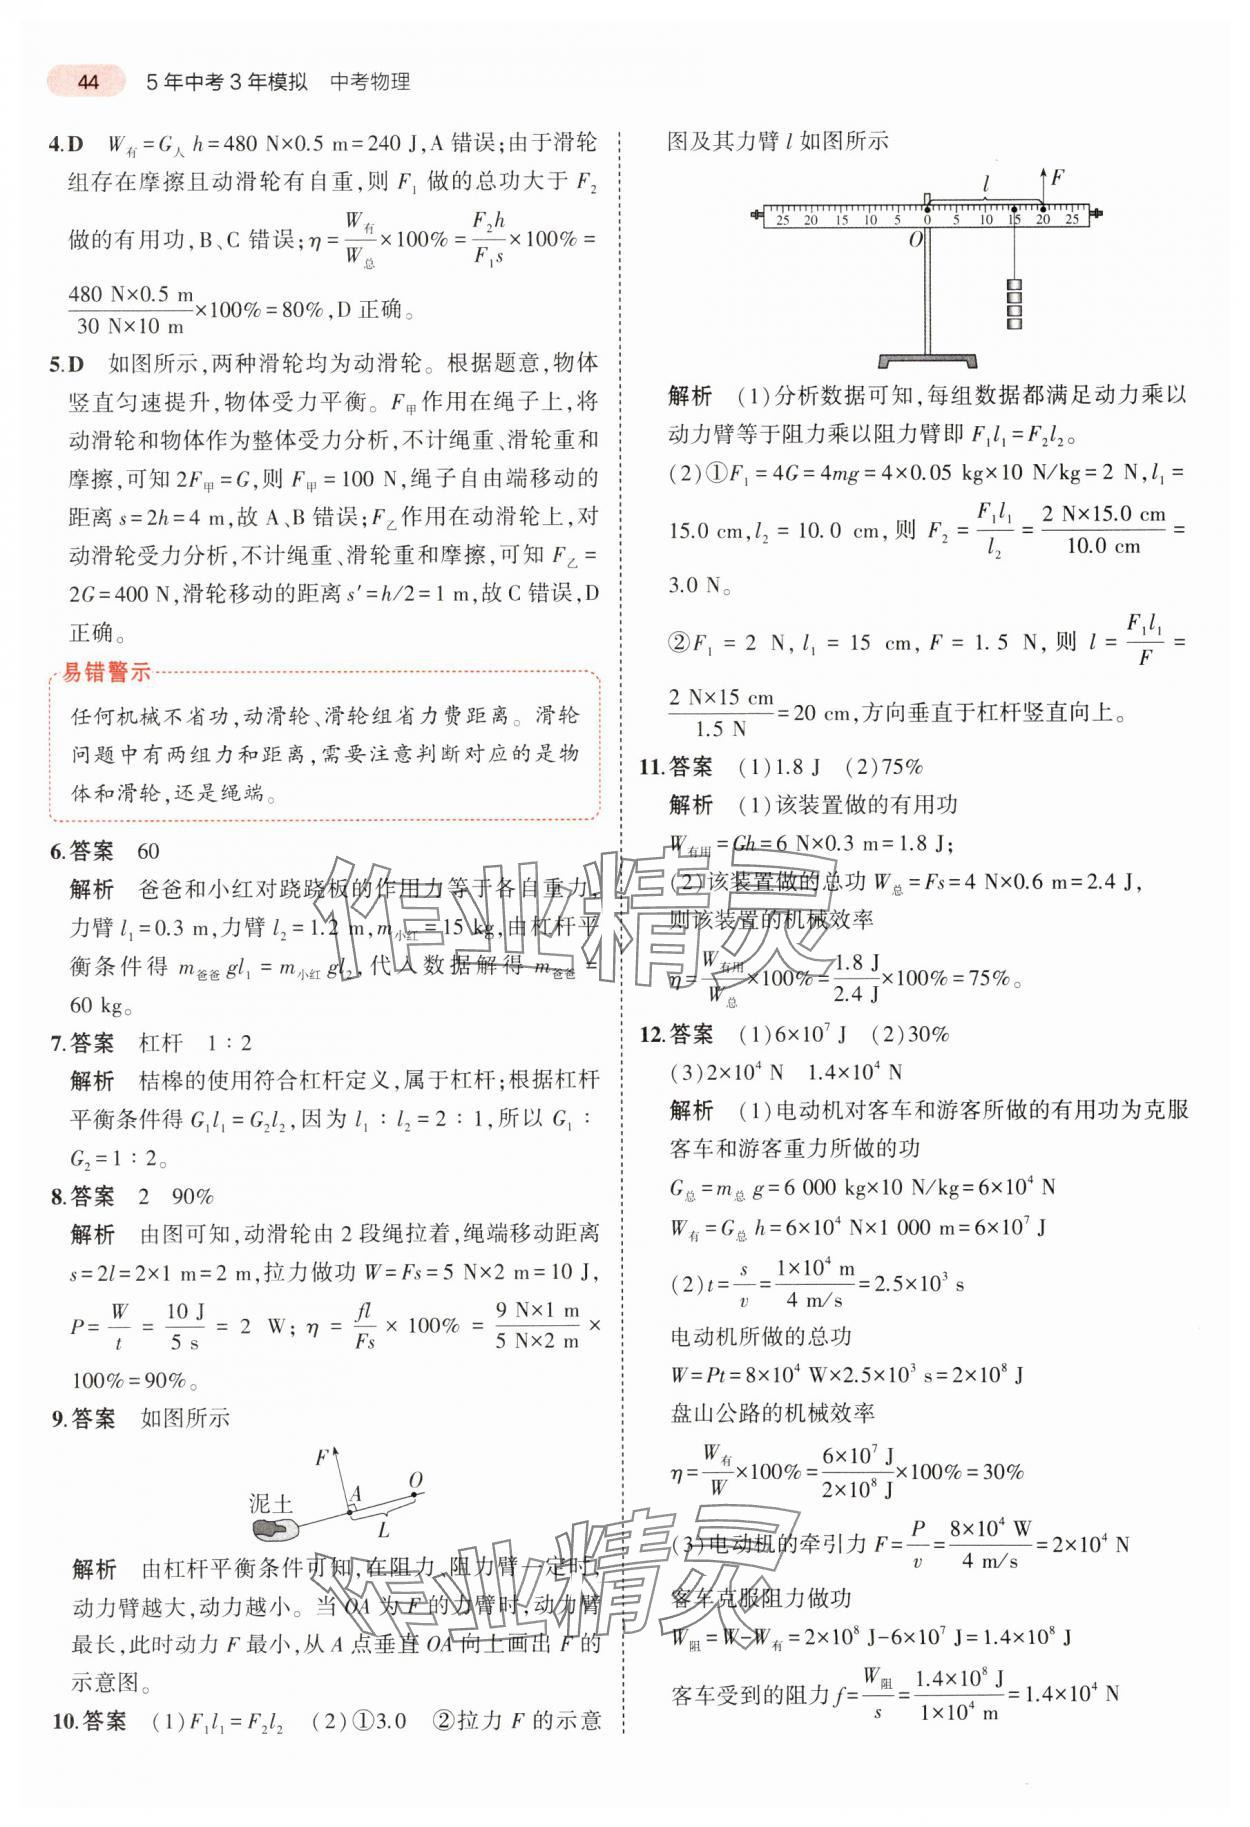 44 5年中考3年模拟 中考物理
4.D W有=G人h=480 N×0.5 m=240 J,A错误;由于滑轮
组存在摩擦且动滑轮有自重,则F₁做的总功大于F₂
做的有用功,B、C错误;η=W有/W总×100%=F₂h/F₁s×100%=
480 N×0.5 m/30 N×10 m×100%=80%,D正确。
5.D 如图所示,两种滑轮均为动滑轮。根据题意,物体
竖直匀速提升,物体受力平衡。F甲作用在绳子上,将
动滑轮和物体作为整体受力分析,不计绳重、滑轮重和
摩擦,可知2F甲=G,则F甲=100 N,绳子自由端移动的
距离s=2h=4 m,故A、B错误;F乙作用在动滑轮上,对
动滑轮受力分析,不计绳重、滑轮重和摩擦,可知F乙=
2G=400 N,滑轮移动的距离s′=h/2=1 m,故C错误,D
正确。
易错警示
任何机械不省功,动滑轮、滑轮组省力费距离。滑轮
问题中有两组力和距离,需要注意判断对应的是物
体和滑轮,还是绳端。
6.答案 60
解析 爸爸和小红对跷跷板的作用力等于各自重力,
力臂l₁=0.3 m,力臂l₂=1.2 m,m小红=15 kg,由杠杆平
衡条件得m爸爸gl₁=m小红gl₂,代入数据解得m爸爸=
60 kg。
7.答案 杠杆 1∶2
解析 桔槔的使用符合杠杆定义,属于杠杆;根据杠杆
平衡条件得G₁l₁=G₂l₂,因为l₁∶l₂=2∶1,所以G₁∶
G₂=1∶2。
8.答案 2 90%
解析 由图可知,动滑轮由2段绳拉着,绳端移动距离
s=2l=2×1 m=2 m,拉力做功W=Fs=5 N×2 m=10 J,
P=W/t=10 J/5 s=2 W;η=fl/Fs×100%=9 N×1 m/5 N×2 m×
100%=90%。
9.答案 如图所示
F
A
O
L
泥土
解析 由杠杆平衡条件可知,在阻力、阻力臂一定时,
动力臂越大,动力越小。当OA为F的力臂时,动力臂
最长,此时动力F最小,从A点垂直OA向上画出F的
示意图。
10.答案 (1)F₁l₁=F₂l₂ (2)①3.0 ②拉力F的示意
图及其力臂l如图所示
l F
25 20 15 10 5 0 5 10 15 20 25
O
解析 (1)分析数据可知,每组数据都满足动力乘以
动力臂等于阻力乘以阻力臂即F₁l₁=F₂l₂。
(2)①F₁=4G=4mg=4×0.05 kg×10 N/kg=2 N,l₁=
15.0 cm,l₂=10.0 cm,则F₂=F₁l₁/l₂=2 N×15.0 cm/10.0 cm=
3.0 N。
②F₁=2 N,l₁=15 cm,F=1.5 N,则l=F₁l₁/F=
2 N×15 cm/1.5 N=20 cm,方向垂直于杠杆竖直向上。
11.答案 (1)1.8 J (2)75%
解析 (1)该装置做的有用功
W有用=Gh=6 N×0.3 m=1.8 J;
(2)该装置做的总功W总=Fs=4 N×0.6 m=2.4 J,
则该装置的机械效率
η=W有用/W总×100%=1.8 J/2.4 J×100%=75%。
12.答案 (1)6×10⁷ J (2)30%
(3)2×10⁴ N 1.4×10⁴ N
解析 (1)电动机对客车和游客所做的有用功为克服
客车和游客重力所做的功
G总=m总g=6 000 kg×10 N/kg=6×10⁴ N
W有=G总h=6×10⁴ N×1 000 m=6×10⁷ J
(2)t=s/v=1×10⁴ m/4 m/s=2.5×10³ s
电动机所做的总功
W=Pt=8×10⁴ W×2.5×10³ s=2×10⁸ J
盘山公路的机械效率
η=W有/W×100%=6×10⁷ J/2×10⁸ J×100%=30%
(3)电动机的牵引力F=P/v=8×10⁴ W/4 m/s=2×10⁴ N
客车克服阻力做功
W阻=W-W有=2×10⁸ J-6×10⁷ J=1.4×10⁸ J
客车受到的阻力f=W阻/s=1.4×10⁸ J/1×10⁴ m=1.4×10⁴ N
作业精灵
作业精灵